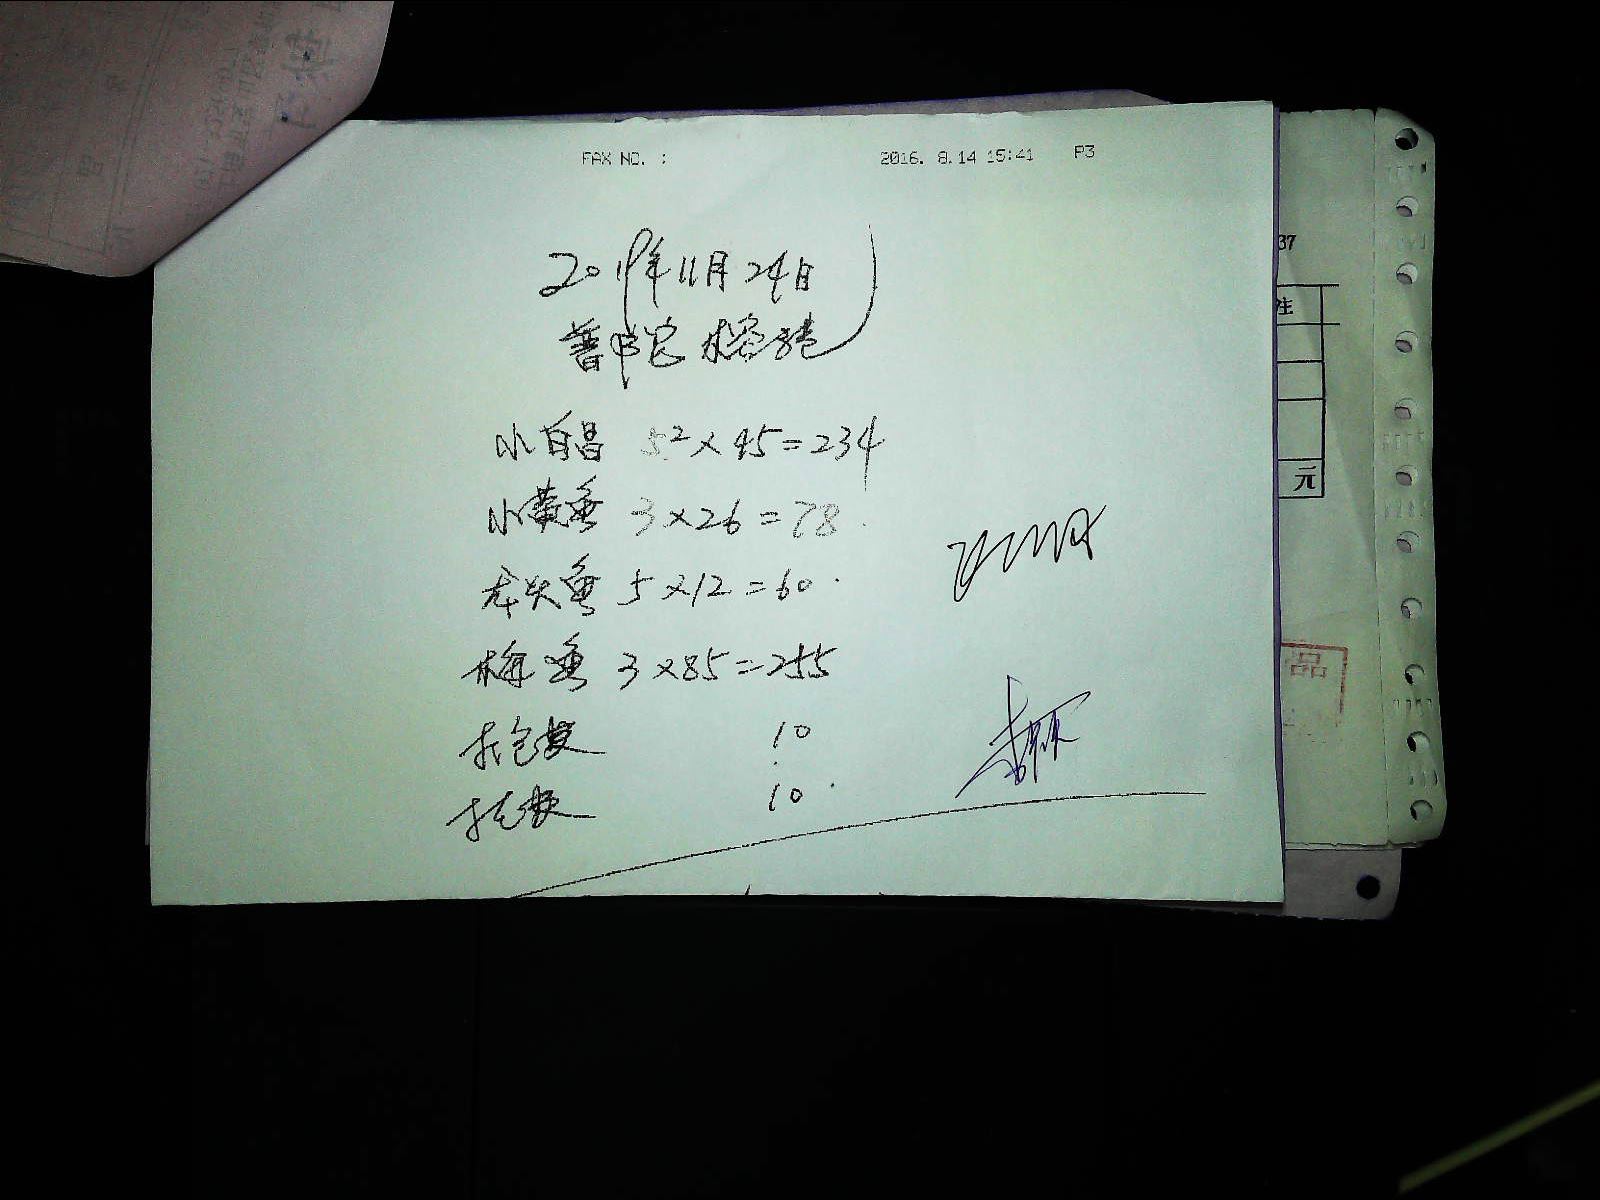 FAX NO. : 2016. 8.14 15:41 P3
2019年11月24日
普陀
小白昌 5² × 45 = 234
小黄鱼 3 × 26 = 78
龙头鱼 5 × 12 = 60
梅鱼 3 × 85 = 255
打包费 10
托费 10
37
注
元
品